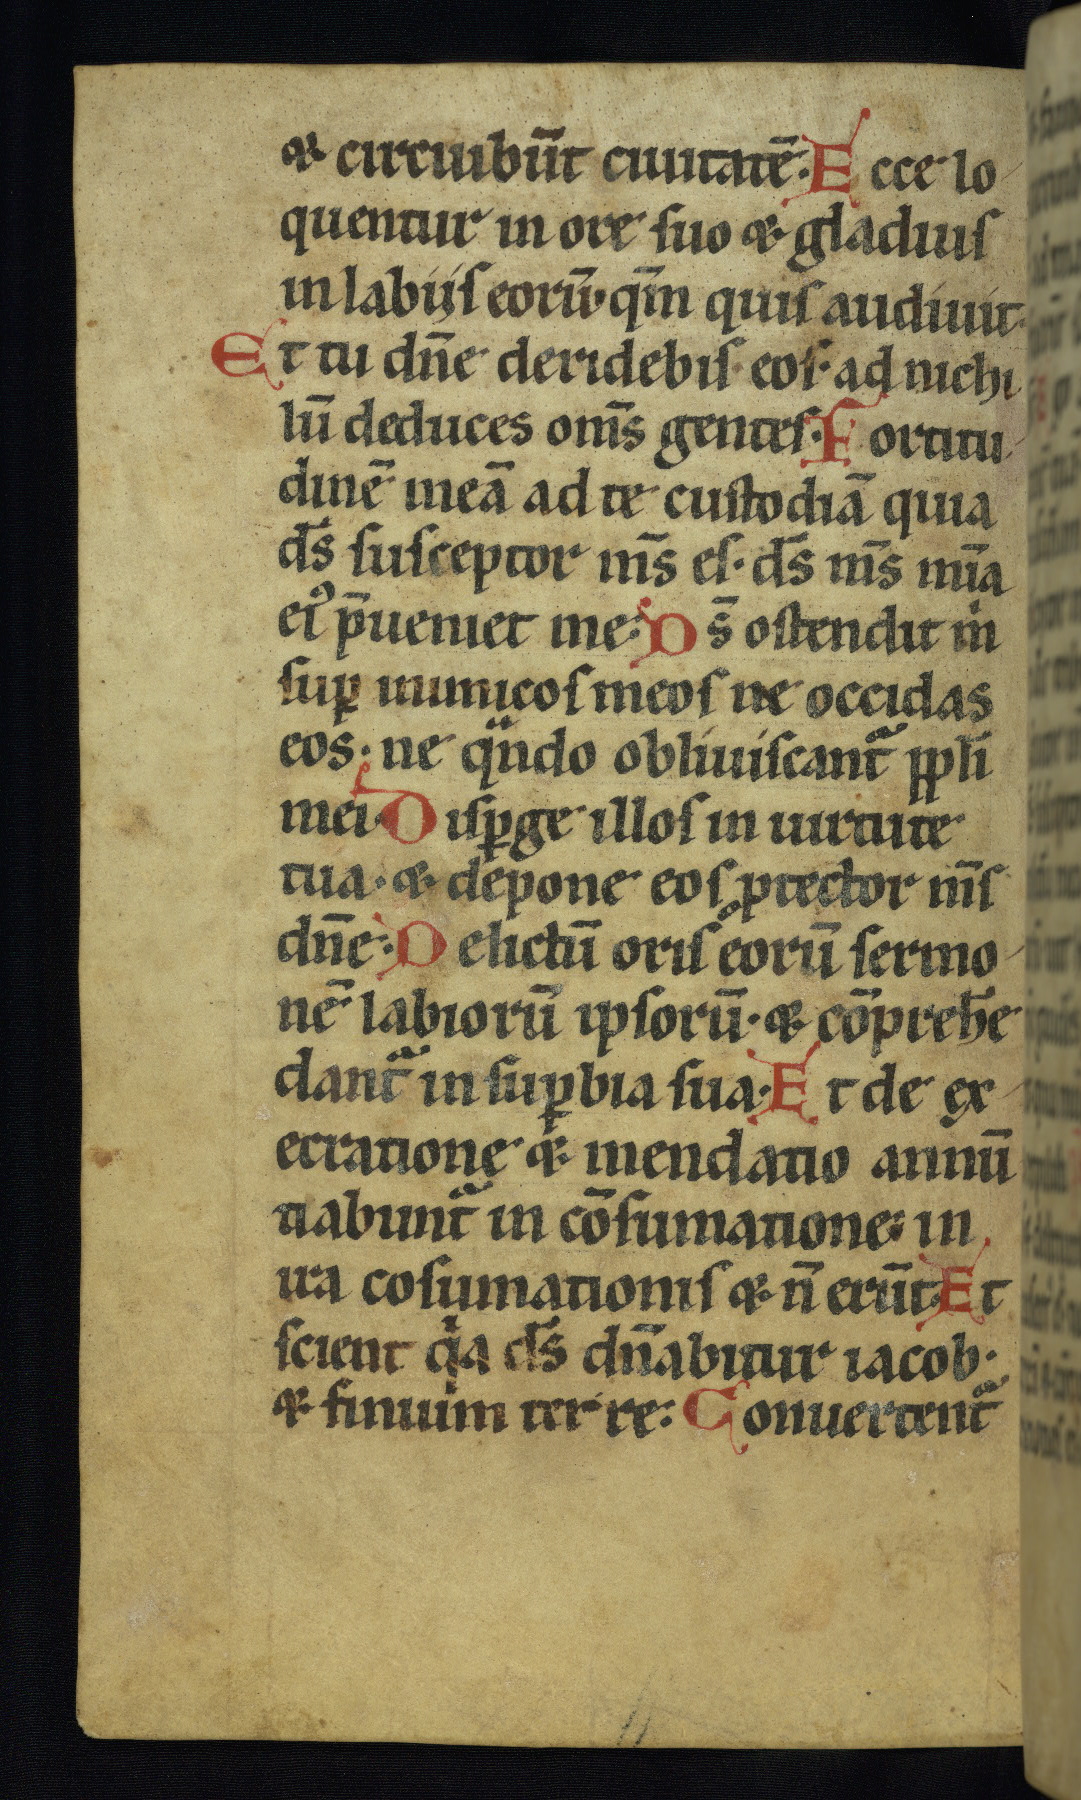 ⁊ circuibūt ciuitatē. Ecce lo
quentur in ore suo ⁊ gladius
in labijs eorū. qm̄ quis audiuit.
Et tu dn̄e deridebis eos. ad nichi
lū deduces om̄s gentes. Fortitu
dinē meā ad te custodiā quia
ds̄ susceptor ms̄ es. ds̄ ms̄ mīa
eiꝰ p̄ueniet me. Ds̄ ostendit m̍
suꝑ inimicos meos ne occidas
eos. ne qn̄do obliuiscant᷑ ppl̄i
mei. Disꝑge illos in uirtute
tua. ⁊ depone eos ꝓtector ms̄
dn̄e. Delictū oris eorū sermo
nē labiorū ipsorū. ⁊ cōprehē
dant᷑ in suꝑbia sua. Et de ex
ecratione ⁊ mendatio annū
tiabunt᷑ in cōsumatione. in
ira cosumationis ⁊ n̄ erūt. Et
scient qia ds̄ dn̄abitur iacob.
⁊ finium terre. Conuertent᷑